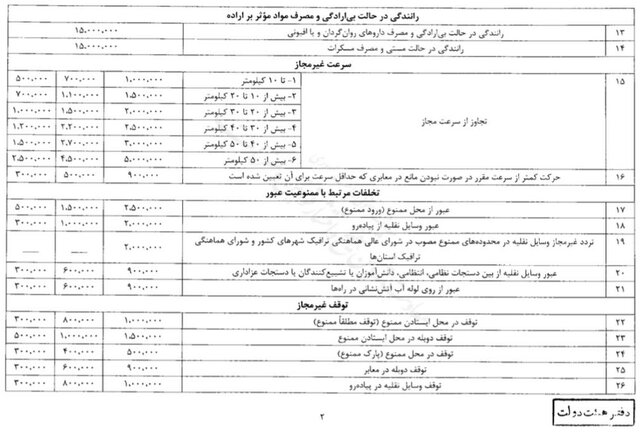 رانندگی در حالت بی‌ارادگی و مصرف مواد مؤثر بر اراده
۱۳ رانندگی در حالت بی‌ارادگی و مصرف داروهای روان‌گردان و یا افیونی ۱۵.۰۰۰.۰۰۰
۱۴ رانندگی در حالت مستی و مصرف مسکرات
سرعت غیرمجاز
۱۵ تجاوز از سرعت مجاز
۱- تا ۱۰ کیلومتر ۱.۰۰۰.۰۰۰ ۷۰۰.۰۰۰ ۵۰۰.۰۰۰
۲- بیش از ۱۰ تا ۲۰ کیلومتر ۱.۵۰۰.۰۰۰ ۱.۱۰۰.۰۰۰ ۷۰۰.۰۰۰
۳- بیش از ۲۰ تا ۳۰ کیلومتر ۲.۰۰۰.۰۰۰ ۱.۵۰۰.۰۰۰ ۱.۰۰۰.۰۰۰
۴- بیش از ۳۰ تا ۴۰ کیلومتر ۲.۵۰۰.۰۰۰ ۲.۲۰۰.۰۰۰ ۱.۲۰۰.۰۰۰
۵- بیش از ۴۰ تا ۵۰ کیلومتر ۳.۰۰۰.۰۰۰ ۲.۷۰۰.۰۰۰ ۱.۵۰۰.۰۰۰
۶- بیش از ۵۰ کیلومتر ۵.۰۰۰.۰۰۰ ۴.۵۰۰.۰۰۰ ۲.۵۰۰.۰۰۰
۱۶ حرکت کمتر از سرعت مقرر در صورت نبودن مانع در معابری که حداقل سرعت برای آن تعیین شده است ۹۰۰.۰۰۰ ۵۰۰.۰۰۰ ۳۰۰.۰۰۰
تخلفات مرتبط با ممنوعیت عبور
۱۷ عبور از محل ممنوع (ورود ممنوع) ۲.۵۰۰.۰۰۰ ۱.۵۰۰.۰۰۰ ۵۰۰.۰۰۰
۱۸ عبور وسایل نقلیه از پیاده‌رو ۲.۰۰۰.۰۰۰ ۱.۰۰۰.۰۰۰ ۳۰۰.۰۰۰
۱۹ تردد غیرمجاز وسایل نقلیه در محدوده‌های ممنوع مصوب در شورای عالی هماهنگی ترافیک شهرهای کشور و شورای هماهنگی ۲.۰۰۰.۰۰۰ — —
ترافیک استان‌ها
۲۰ عبور وسایل نقلیه از بین دستجات نظامی، انتظامی، دانش‌آموزان یا تشییع‌کنندگان یا دستجات عزاداری ۹۰۰.۰۰۰ ۶۰۰.۰۰۰ ۳۰۰.۰۰۰
۲۱ عبور از روی لوله آب آتش‌نشانی در راه‌ها ۹۰۰.۰۰۰ ۶۰۰.۰۰۰ ۳۰۰.۰۰۰
توقف غیرمجاز
۲۲ توقف در محل ایستادن ممنوع (توقف مطلقاً ممنوع) ۱.۰۰۰.۰۰۰ ۸۰۰.۰۰۰ ۳۰۰.۰۰۰
۲۳ توقف دوبله در محل ایستادن ممنوع ۱.۵۰۰.۰۰۰ ۱.۰۰۰.۰۰۰ ۵۰۰.۰۰۰
۲۴ توقف در محل ممنوع (پارک ممنوع) ۵۰۰.۰۰۰ ۴۰۰.۰۰۰ ۳۰۰.۰۰۰
۲۵ توقف دوبله در معابر ۹۰۰.۰۰۰ ۶۰۰.۰۰۰ ۳۰۰.۰۰۰
۲۶ توقف وسایل نقلیه در پیاده‌رو ۱.۰۰۰.۰۰۰ ۸۰۰.۰۰۰ ۳۰۰.۰۰۰
۲
دفتر هیئت دولت